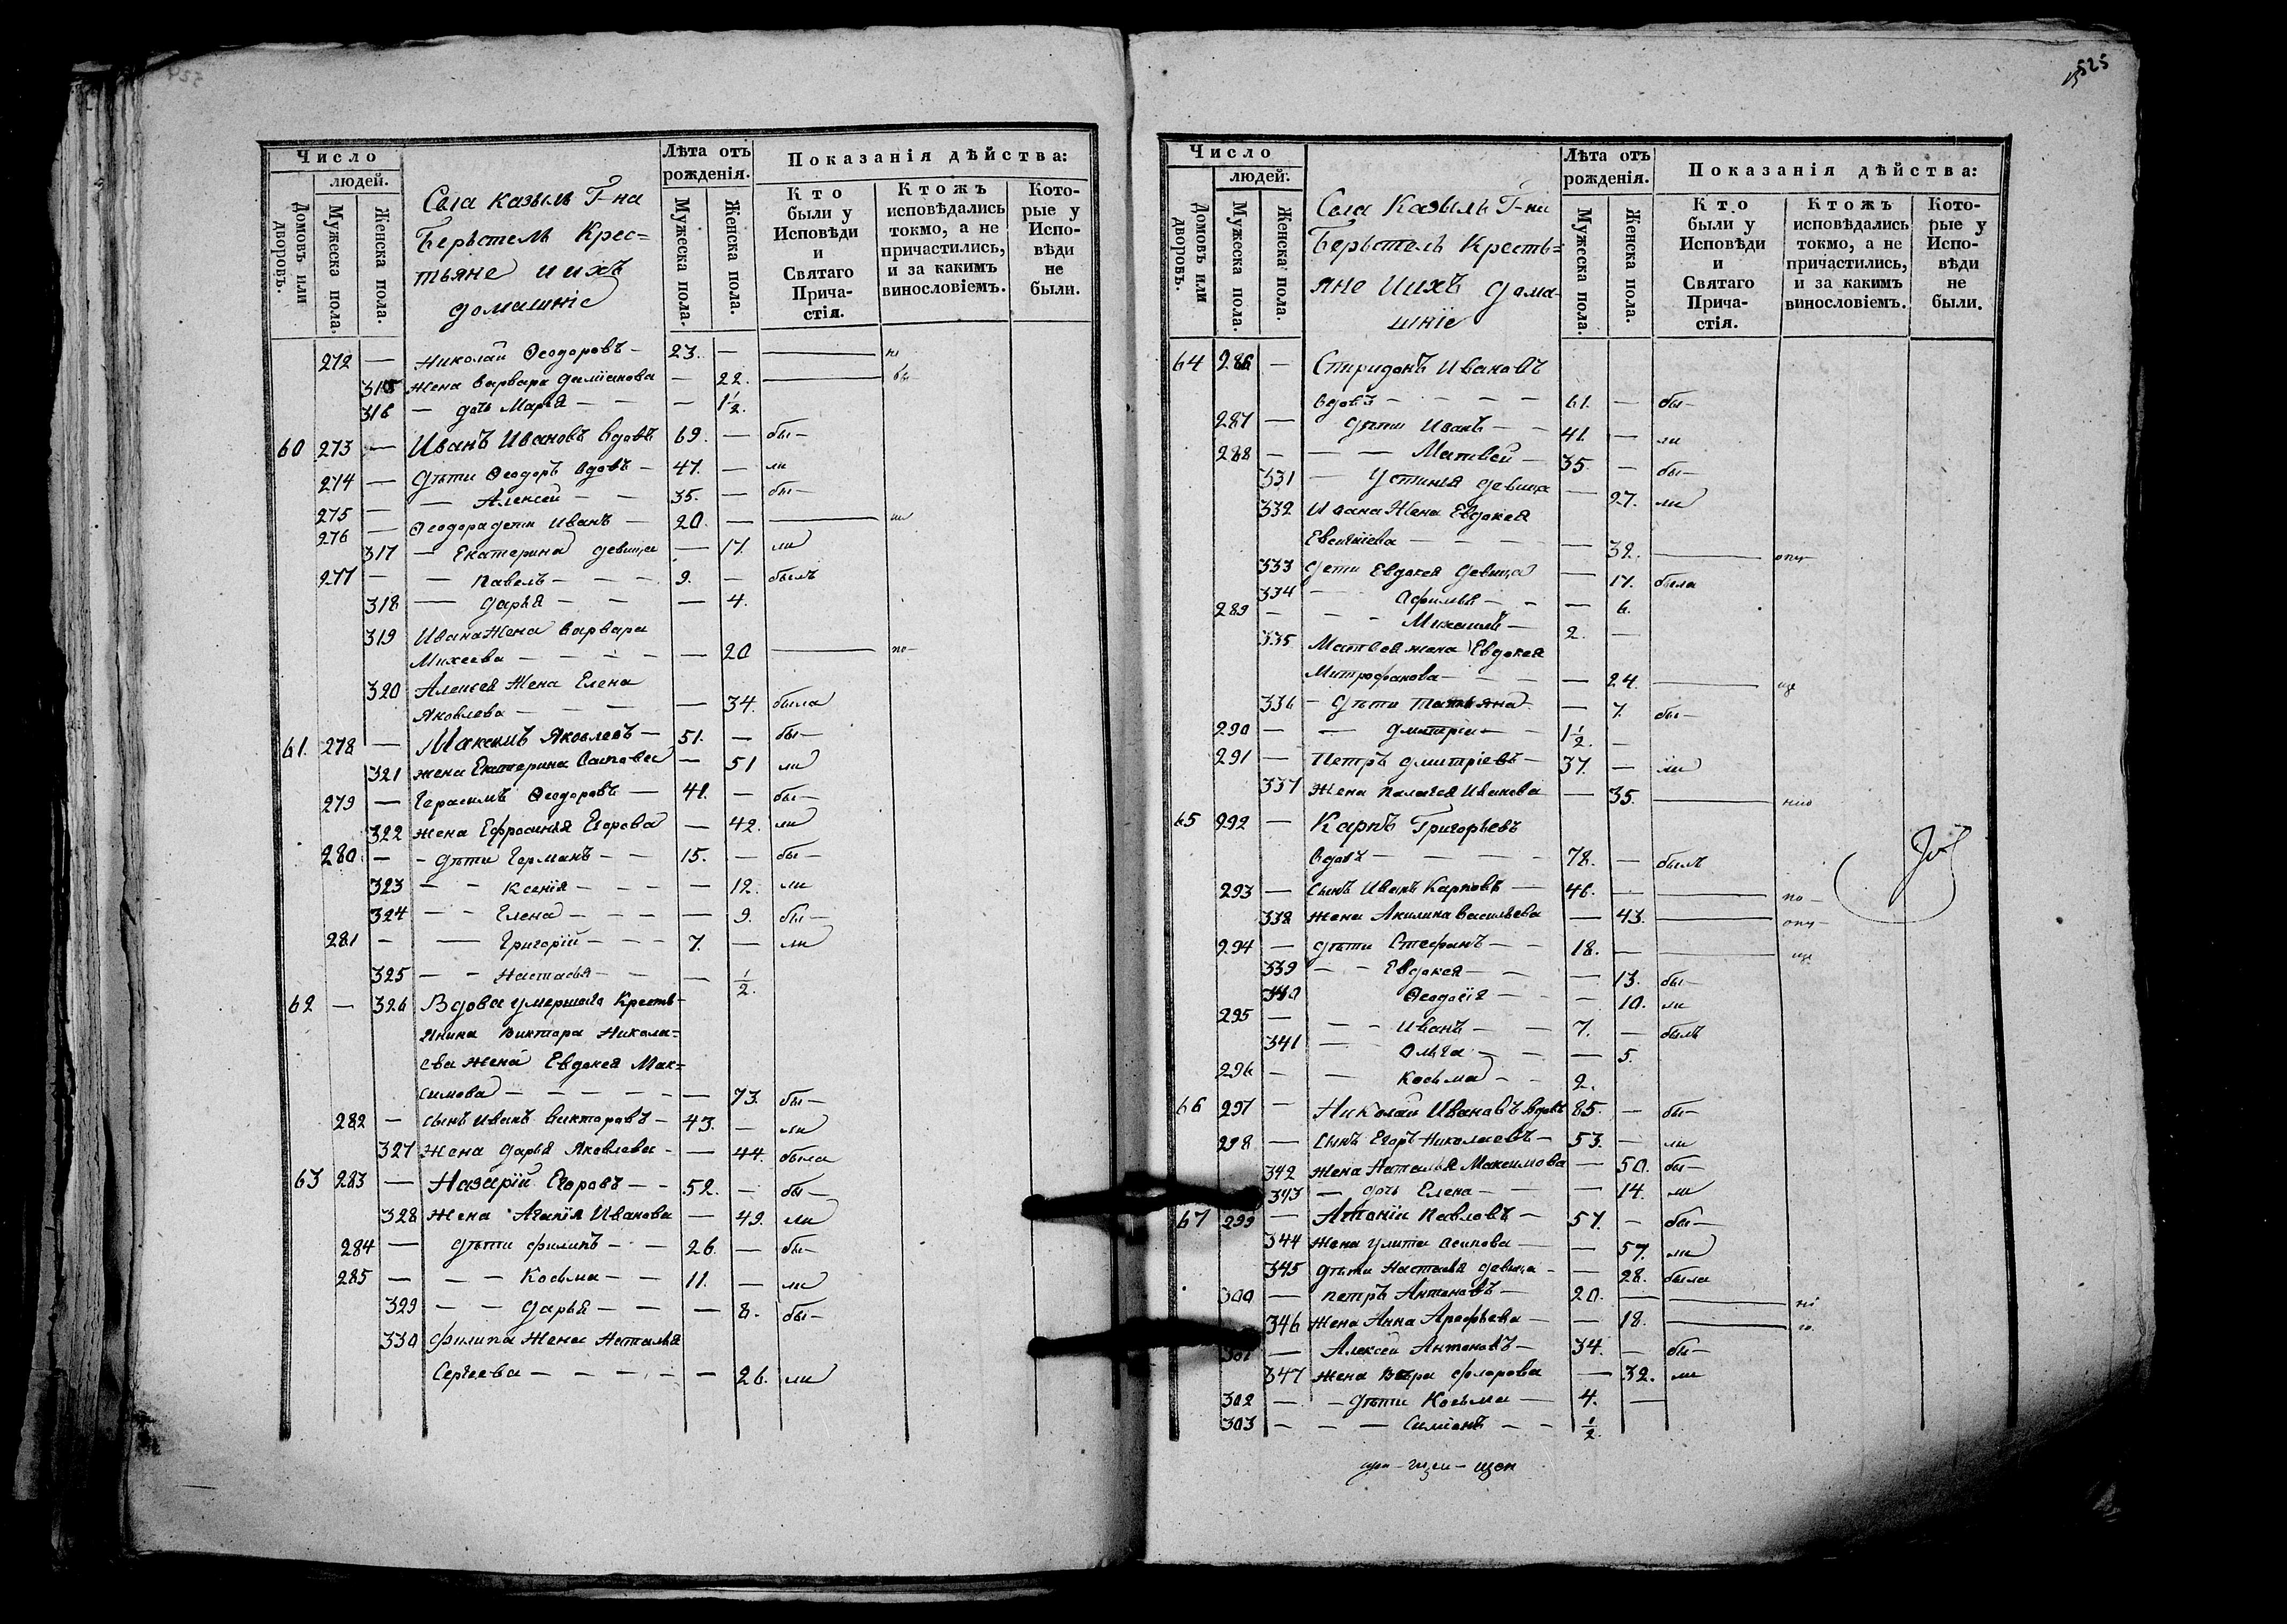 525
Число
людей.
Домовъ или дворовъ.
Мужеска пола.
Женска пола.
Села Казыль Г-на
Берьстель Крес=
тьяне и ихъ
домашніе
Лѣта отъ рожденія.
Мужеска пола.
Женска пола.
Показанія дѣйства:
Кто были у Исповѣди и Святаго Причастія.
Ктожъ исповѣдались токмо, а не причастились, и за какимъ винословіемъ.
Которые у Исповѣди не были.
272 — Николай Ѳеодоровъ — 23. —
315 жена Варвара Даміанова — 22.
316 — дочь Марья — — — 1 1/2.
60 273 — Иванъ Ивановъ вдовъ 69. — бы—
274 — Дѣти Ѳеодоръ вдовъ — 47. — ли
275 — — Алексей — — 35. — бы—
276 — Ѳеодора дети Иванъ — 20. —
317 — Екатерина девица — 17. ли
277 — — Павелъ — — — 9. — былъ
318 — Дарья — — — 4.
319 Ивана жена Варвара
Михеева — — — — — 20 — по—
320 Алексея жена Елена
Яковлева — — — — 34. была
61. 278 — Максимъ Яковлевъ — 51. — бы—
321 жена Екатерина Осипова — 51 ли
279 — Герасимъ Ѳеодоровъ — 41. — бы—
322 жена Ефросинья Егорова — 42. ли
280 — - дѣти Германъ — — 15. — бы—
323 — - Ксенія — — — — 12. ли
324 — - Елена — — — — 9. бы—
281 — — Григорій — — — 7. — ли
325 — - Настасья — — — 1/2.
62 — 326 Вдова умершаго Кресть-
янина Виктора Никола=
ева жена Евдокея Мак=
симова — — — — — — 73. бы—
282 — сынъ Иванъ Викторовъ — 43. — ли
327 жена Дарья Яковлева — — 44. была
63 283 — Назарій Егоровъ — — 52. — бы—
328 жена Агапія Иванова — 49. ли
284 — дѣти Филипъ — — 26. — бы—
285 — — — Косьма — — 11. — ли
329 — — Дарья — — — 8. бы—
330 Филипа жена Наталья
Сергеева — — — — — — 26. ли
Число
людей.
Домовъ или дворовъ.
Мужеска пола.
Женска пола.
Села Казыль Г-на
Берьстель Кресть=
яне и ихъ дома-
шніе
Лѣта отъ рожденія.
Мужеска пола.
Женска пола.
Показанія дѣйства:
Кто были у Исповѣди и Святаго Причастія.
Ктожъ исповѣдались токмо, а не причастились, и за какимъ винословіемъ.
Которые у Исповѣди не были.
64 286 — Спиридонъ Ивановъ
вдовъ — — — — — 61. — бы—
287 — дѣти Иванъ — — 41. — ли
288 — — — Матвей — 35. — бы—
331 — Устинья девица — 27. ли
332 Ивана жена Евдокея
— — — — — 32. — опу—
333 дети Евдокея девица — 17. была
334 — Афимья — — — 6.
289 — — - Михаилъ — 2. —
335 Матвея жена Евдокея
Митрофанова — — — 24. — ще
336 — дѣти Татьяна — 7. бы—
290 — — Дмитрій — 1 1/2. —
291 — Петръ Дмитріевъ — 37. — ли
337 жена Палагея Иванова — 35. — нію
65 292 — Карпъ Григорьевъ
вдовъ — — — — 78. — былъ
293 — сынъ Иванъ Карповъ — 46. — по—
338 жена Акилина Васильева — 43. — опу—
294 — дѣти Стефанъ — — 18. — ще
339 — - Евдокея — — — 13. бы—
340 Ѳеодосія — — — 10. ли
295 — — - Иванъ — — 7. — былъ
341 — - Ольга — — — 5.
296 — — Косьма — - 2.
66 297 — Николай Ивановъ вдовъ 85. — бы—
298 — сынъ Егоръ Николаевъ — 53. — ли
342 жена Наталья Максимова — 50. бы—
343 — дочь Елена — — 14. ли
67 299 — Антоній Павловъ — 57. — бы—
344 жена Улита Осипова — — 57. ли
345 дѣти Настасья девица — — 28. была
300 — Петръ Антоновъ — 20. —
346 жена Анна Арефьева — — 18.
301 — Алексей Антоновъ — 34. — бы—
347 жена Вѣра Флорова — 32. ли
302 — - дѣти Косьма — 4. —
303 — - — Симіонъ — — 1/2.